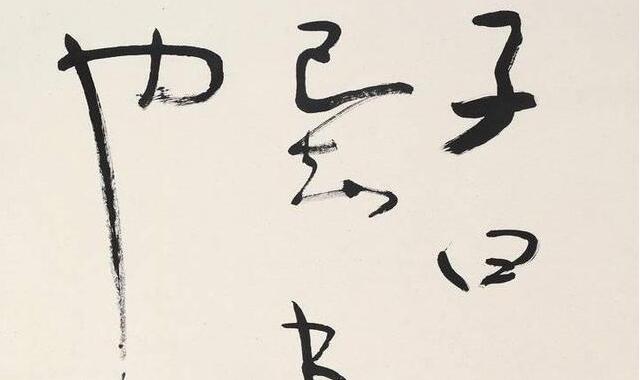 子曰
己知
也